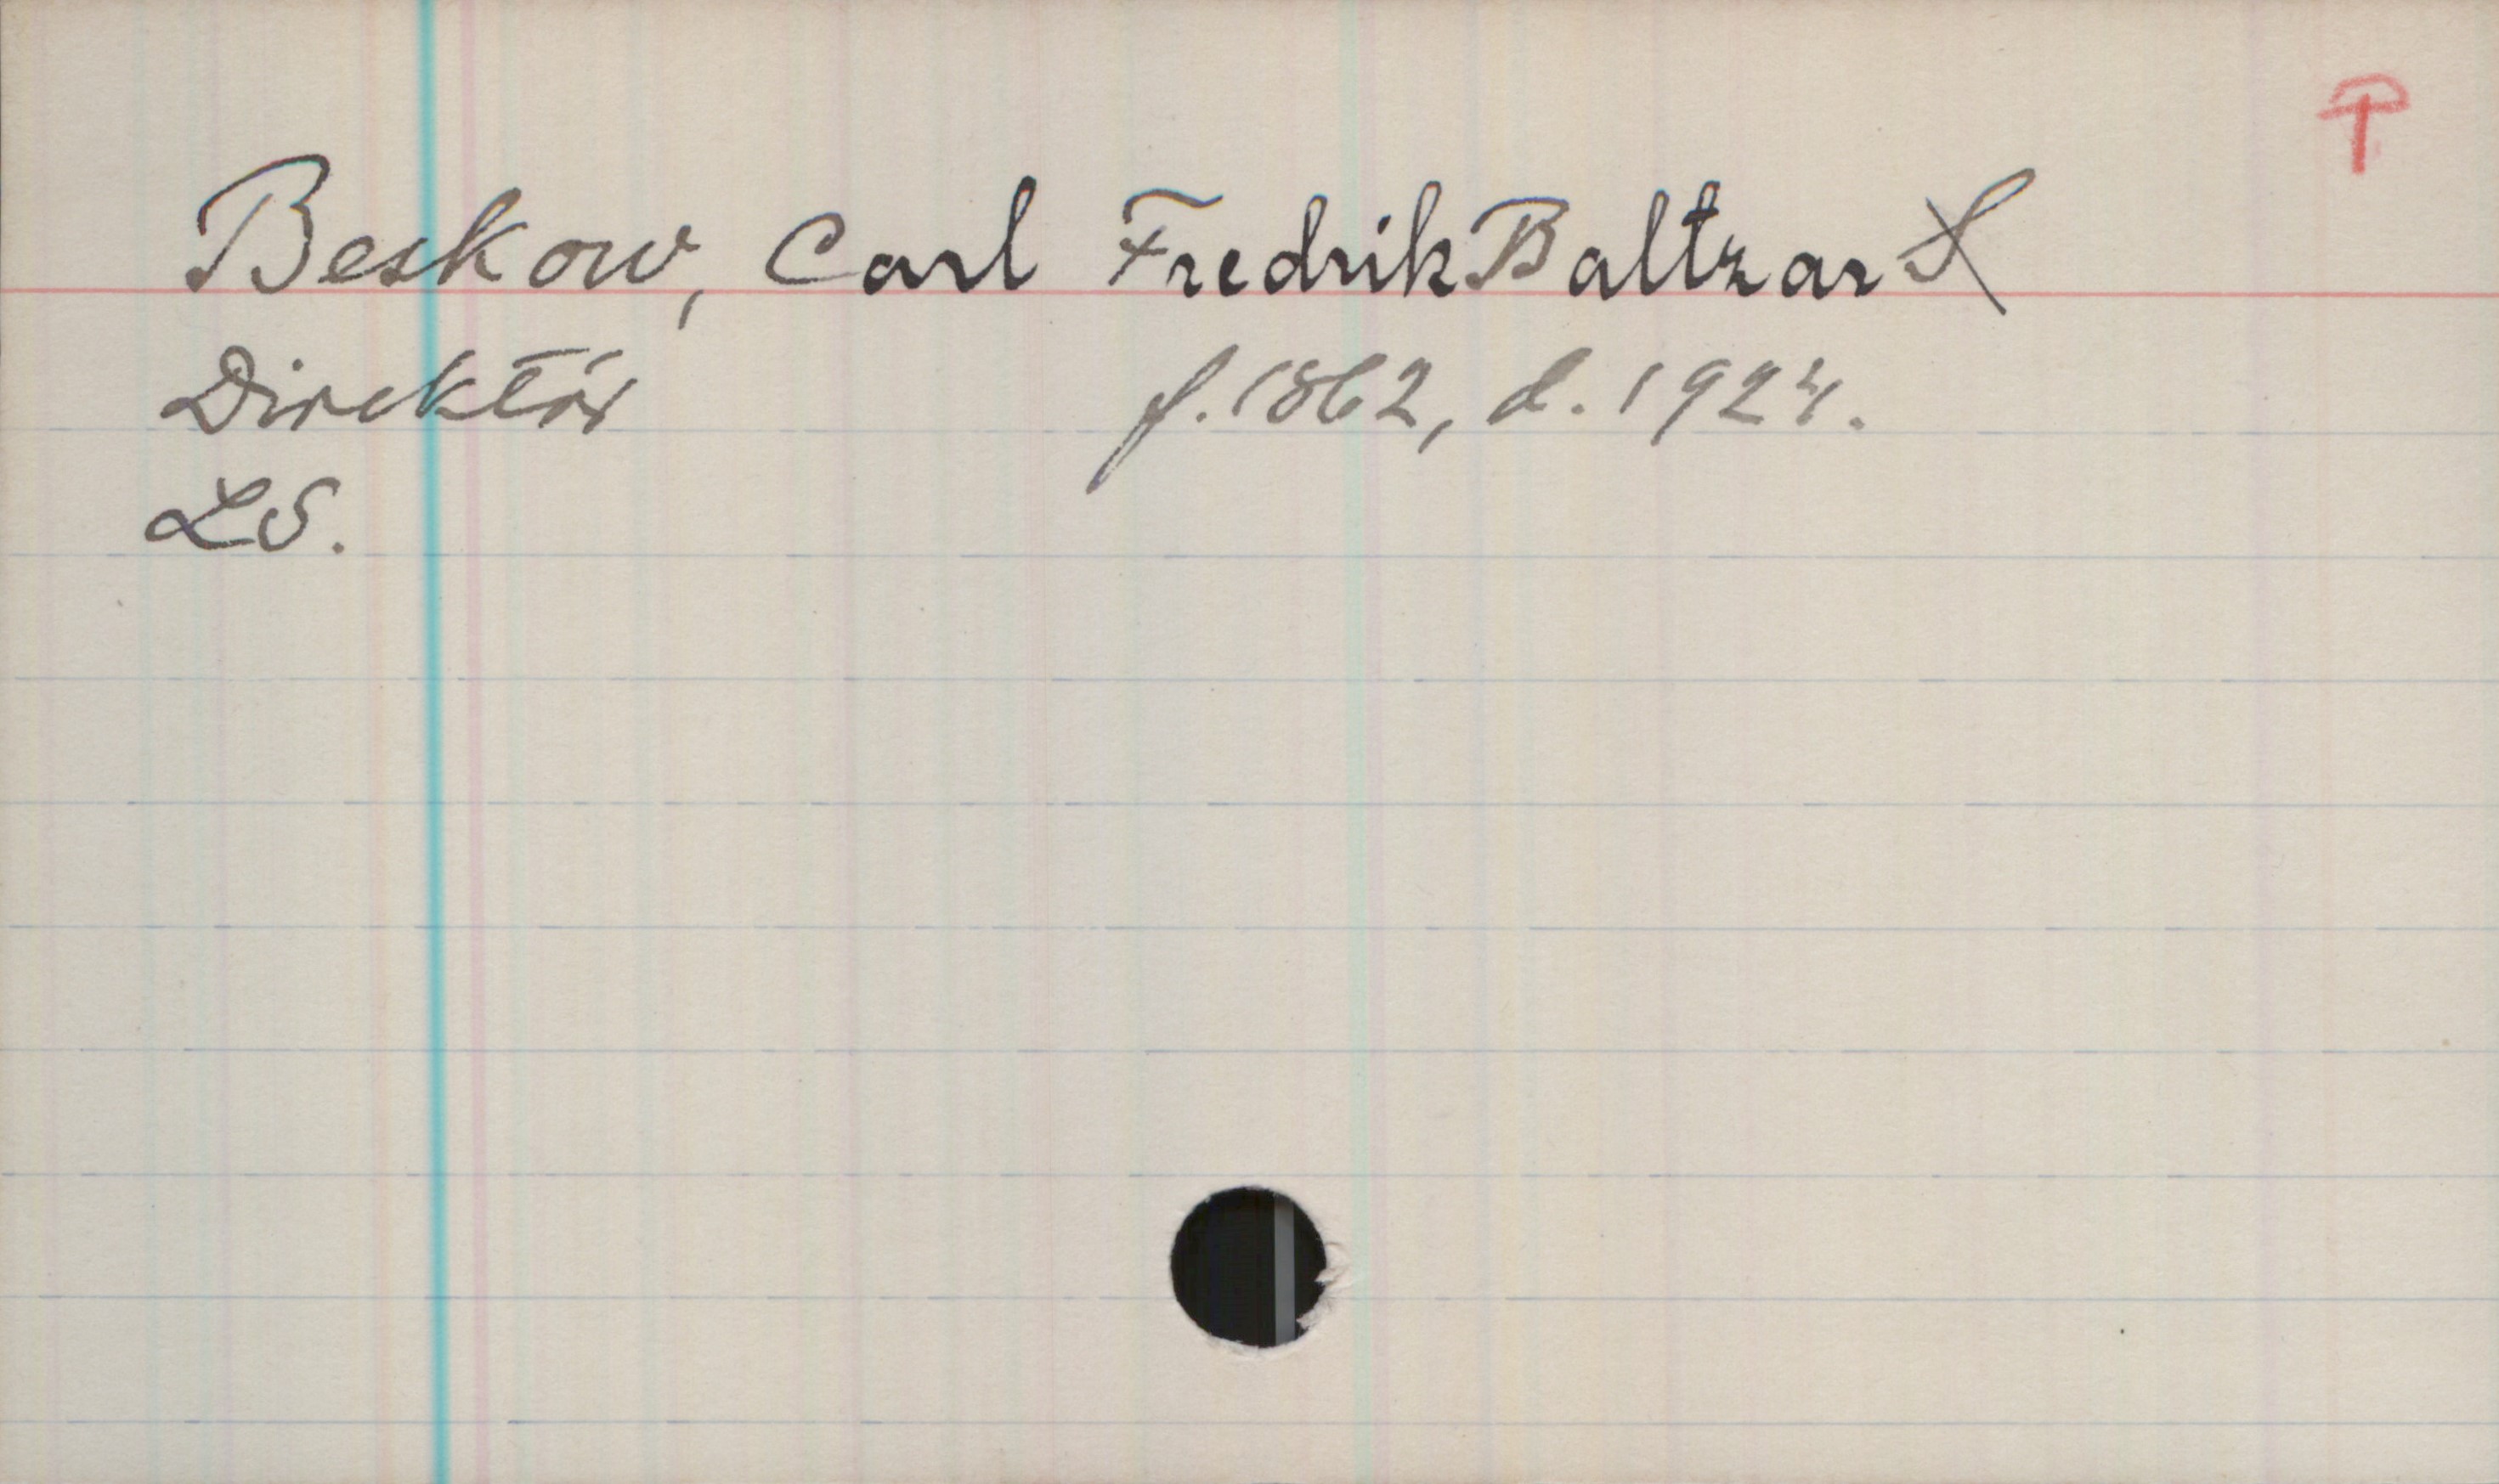 Beskow, Carl Fredrik Baltzar
Direktör f. 1862, d. 1924.
LS.